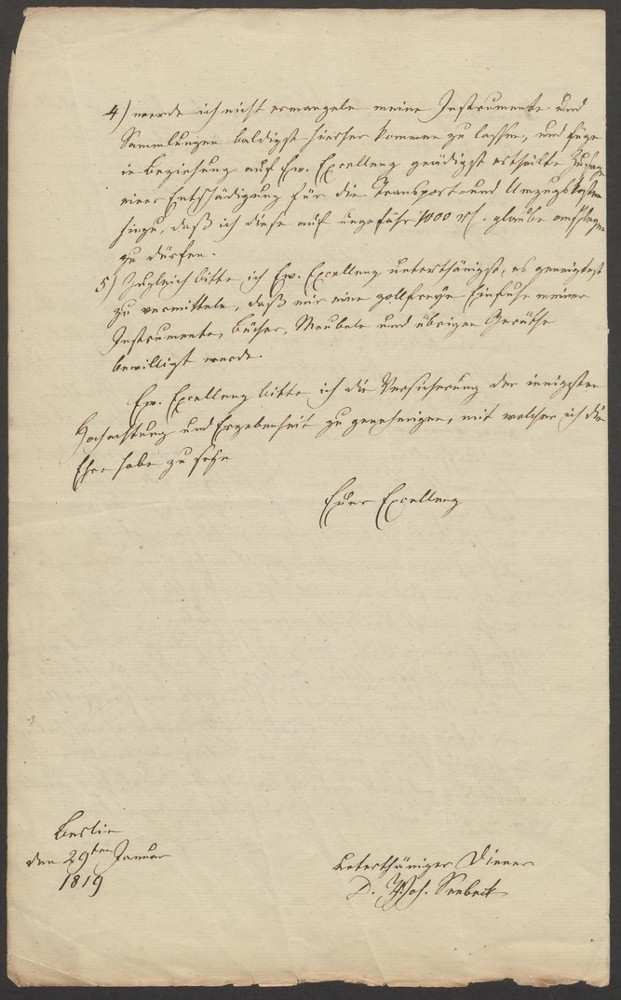 4) werde ich nicht ermangeln meine Instrumente und
Sammlungen baldigst hierher kommen zu lassen, und füge
in Beziehung auf Ew. Excellenz gnädigst ertheilte Zusage
einer Entschädigung für die Transport- und Umzugskosten
hinzu, daß ich diese auf ungefähr 1000 rth. glaube anschlagen
zu dürfen.
5) Zugleich bitte ich Ew. Excellenz unterthänigst, es geneigtest
zu vermitteln, daß mir eine zollfreye Einfuhr meiner
Instrumente, Bücher, Meubeln und übrigen Geräthe
bewilligt werde.
Ew. Excellenz bitte ich die Versicherung der innigsten
Hochachtung und Ergebenheit zu genehmigen, mit welcher ich die
Ehre habe zu seyn
Euer Excellenz
Berlin
den 29ten Januar
1819
unterthäniger Diener
D. Joh. Seebeck